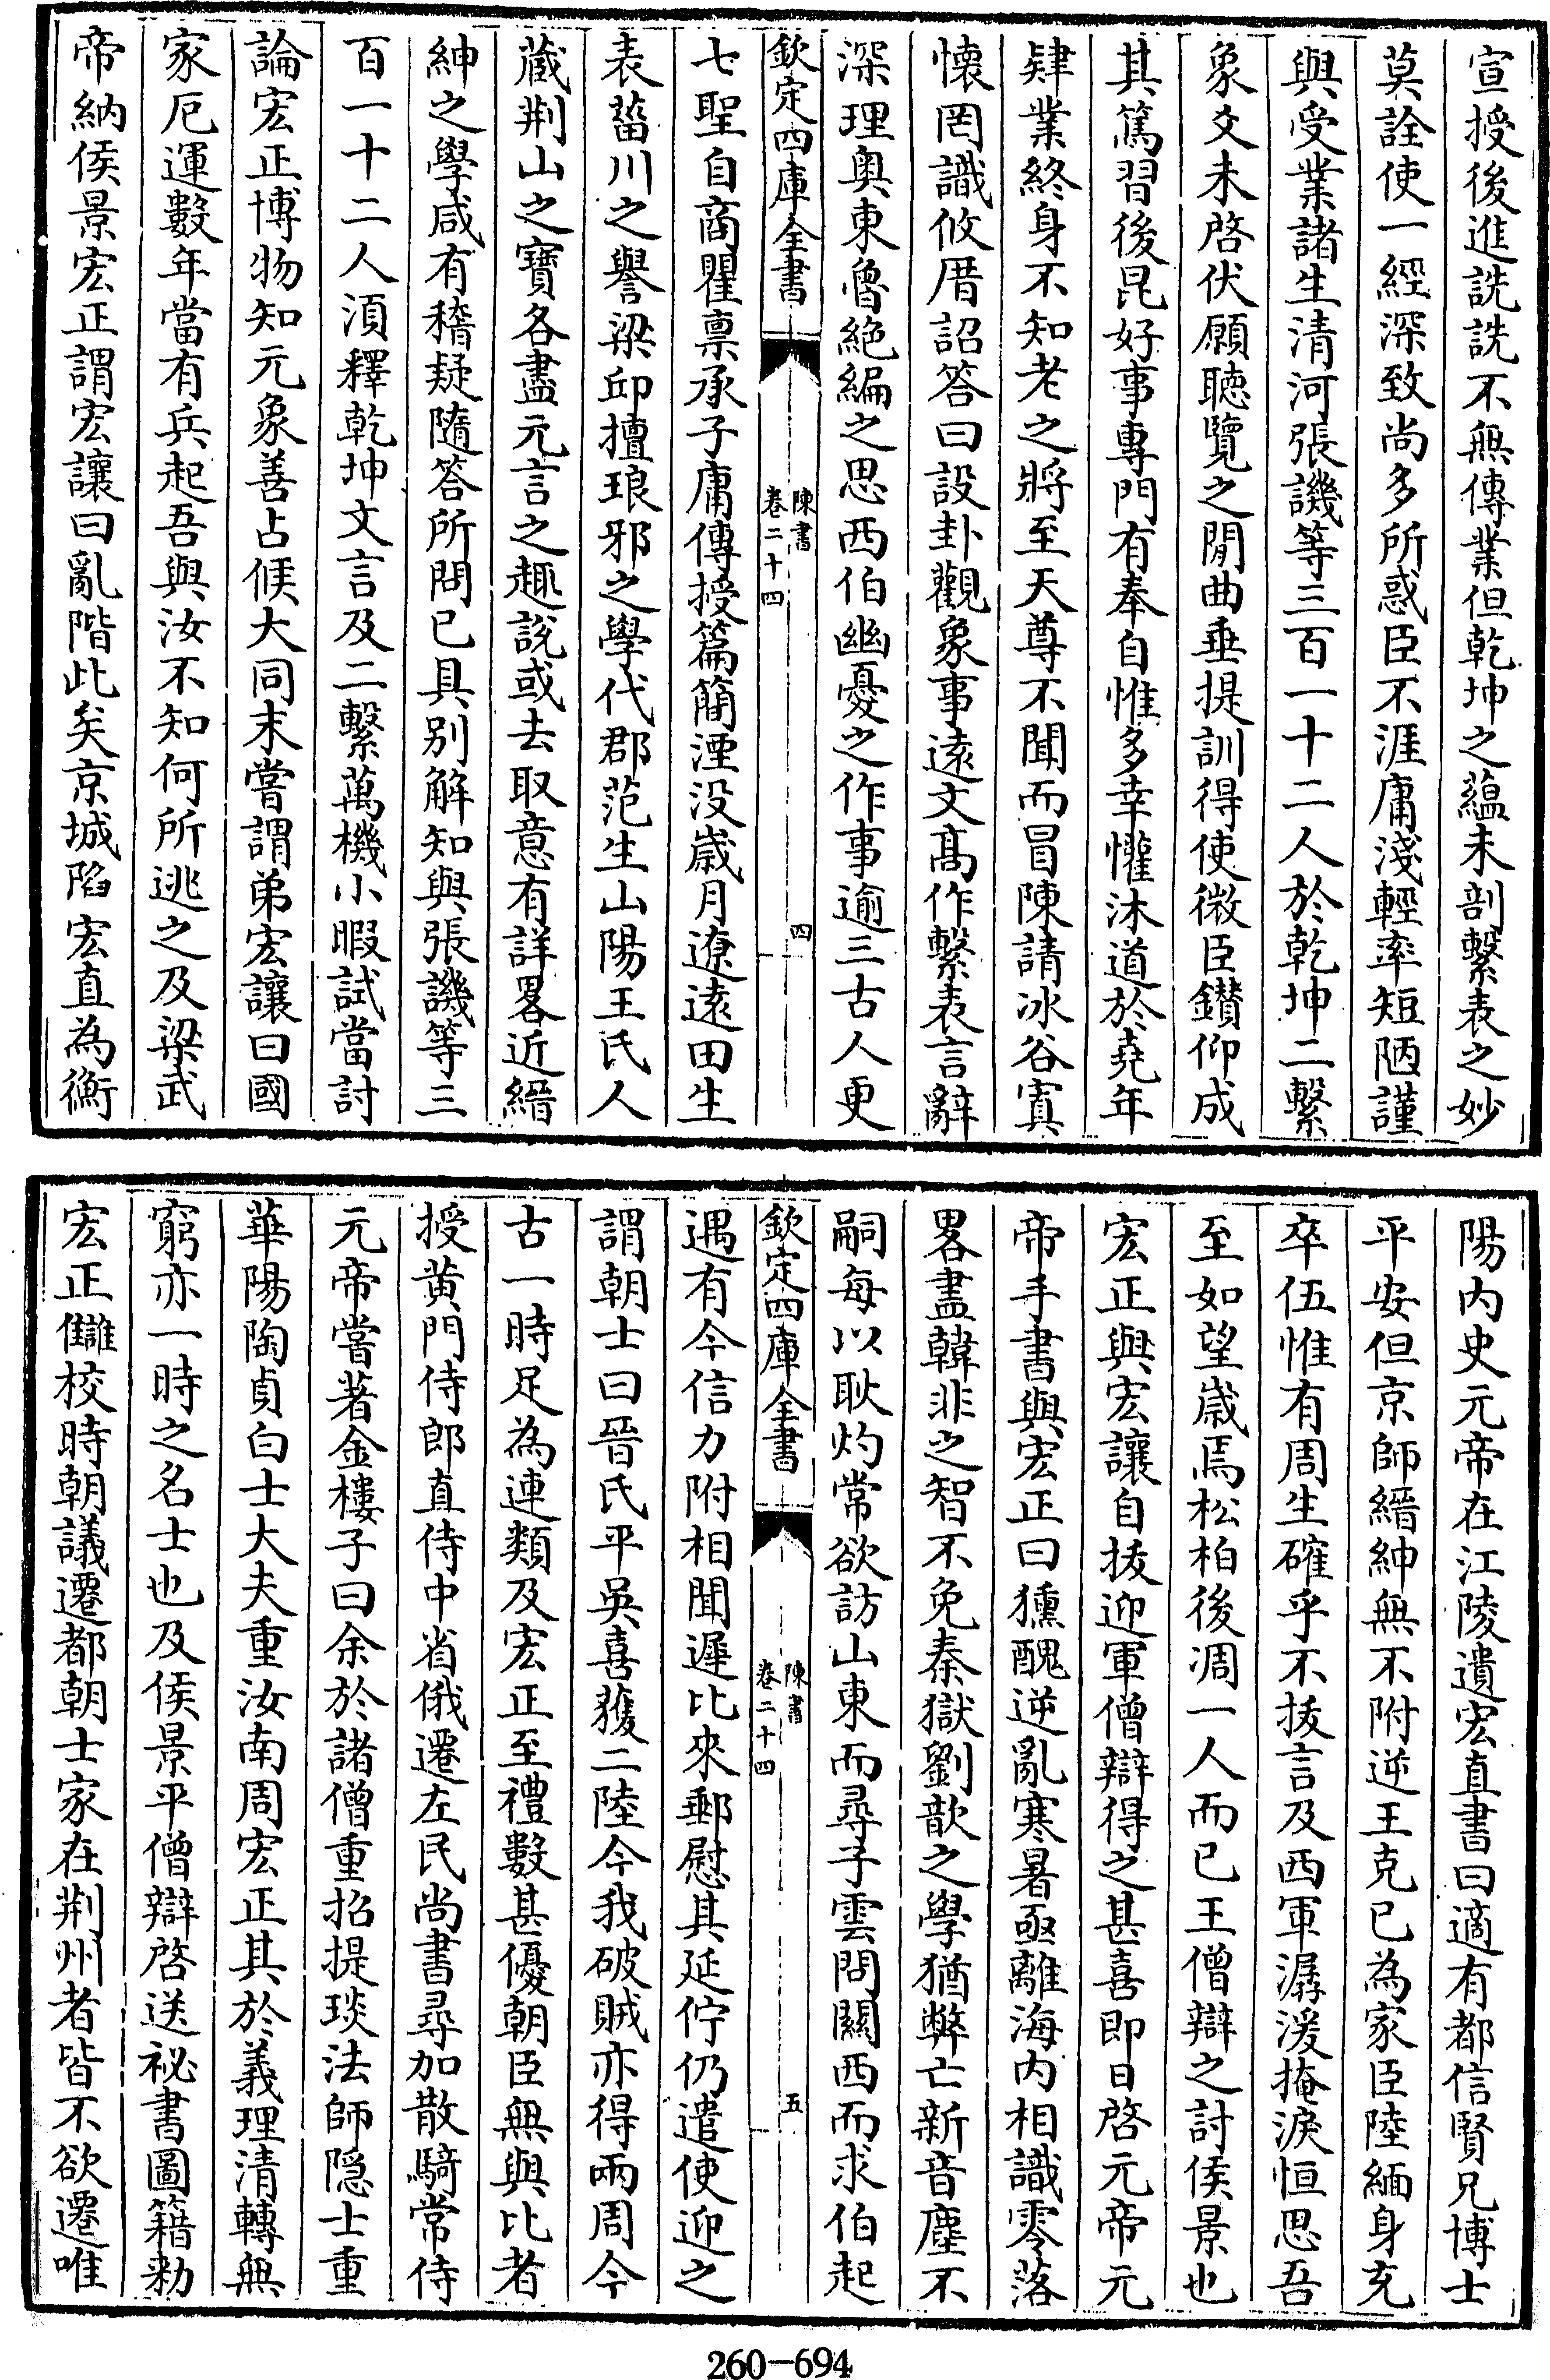 宣授後進詵詵不無傳業但乾坤之蘊未剖繫表之妙
莫詮使一經深致尚多所惑臣不涯庸淺輕率短陋謹
與受業諸生清河張譏等三百一十二人於乾坤二繫
象爻未啓伏願聽覽之閒曲垂提訓得使微臣鑚仰成
其篤習後昆好事專門有奉自惟多幸懽沐道於堯年
肄業終身不知老之將至天尊不聞而冒陳請冰谷寘
懷罔識攸厝詔答曰設卦觀象事逺文髙作繫表言辭
深理奥東魯絶編之思西伯幽憂之作事逾三古人更
欽定四庫全書
陳書
卷二十四
四
七聖自商瞿禀承子庸傳授篇簡湮没歳月遼逺田生
表菑川之譽梁邱擅琅邪之學代郡范生山陽王氏人
蔵荆山之寶各盡元言之趣説或去取意有詳畧近縉
紳之學咸有稽疑隨答所問已具别解知與張譏等三
百一十二人湏釋乾坤文言及二繫萬機小暇試當討
論宏正博物知元象善占候大同末嘗謂弟宏讓曰國
家厄運數年當有兵起吾與汝不知何所逃之及梁武
帝納侯景宏正謂宏讓曰亂階此矣京城陷宏直為衡
陽内史元帝在江陵遺宏直書曰適有都信賢兄博士
平安但京師縉紳無不附逆王克已為家臣陸緬身充
卒伍惟有周生確乎不拔言及西軍潺湲掩淚恒思吾
至如望歳焉松柏後凋一人而已王僧辯之討侯景也
宏正與宏讓自拔迎軍僧辯得之甚喜即日啓元帝元
帝手書與宏正曰獯醜逆亂寒暑亟離海内相識零落
畧盡韓非之智不免秦獄劉歆之學猶弊亡新音塵不
嗣每以耿灼常欲訪山東而尋子雲問關西而求伯起
欽定四庫全書
陳書
卷二十四
五
遇有今信力附相聞遲比來郵慰其延佇仍遣使迎之
謂朝士曰晉氏平吳喜獲二陸今我破賊亦得兩周今
古一時足為連類及宏正至禮數甚優朝臣無與比者
授黄門侍郎直侍中省俄遷左民尚書尋加散騎常侍
元帝嘗著金樓子曰余於諸僧重招提琰法師隠士重
華陽陶貞白士大夫重汝南周宏正其於義理清轉無
窮亦一時之名士也及侯景平僧辯啓送祕書圖籍勑
宏正讎校時朝議遷都朝士家在荆州者皆不欲遷唯
260-694